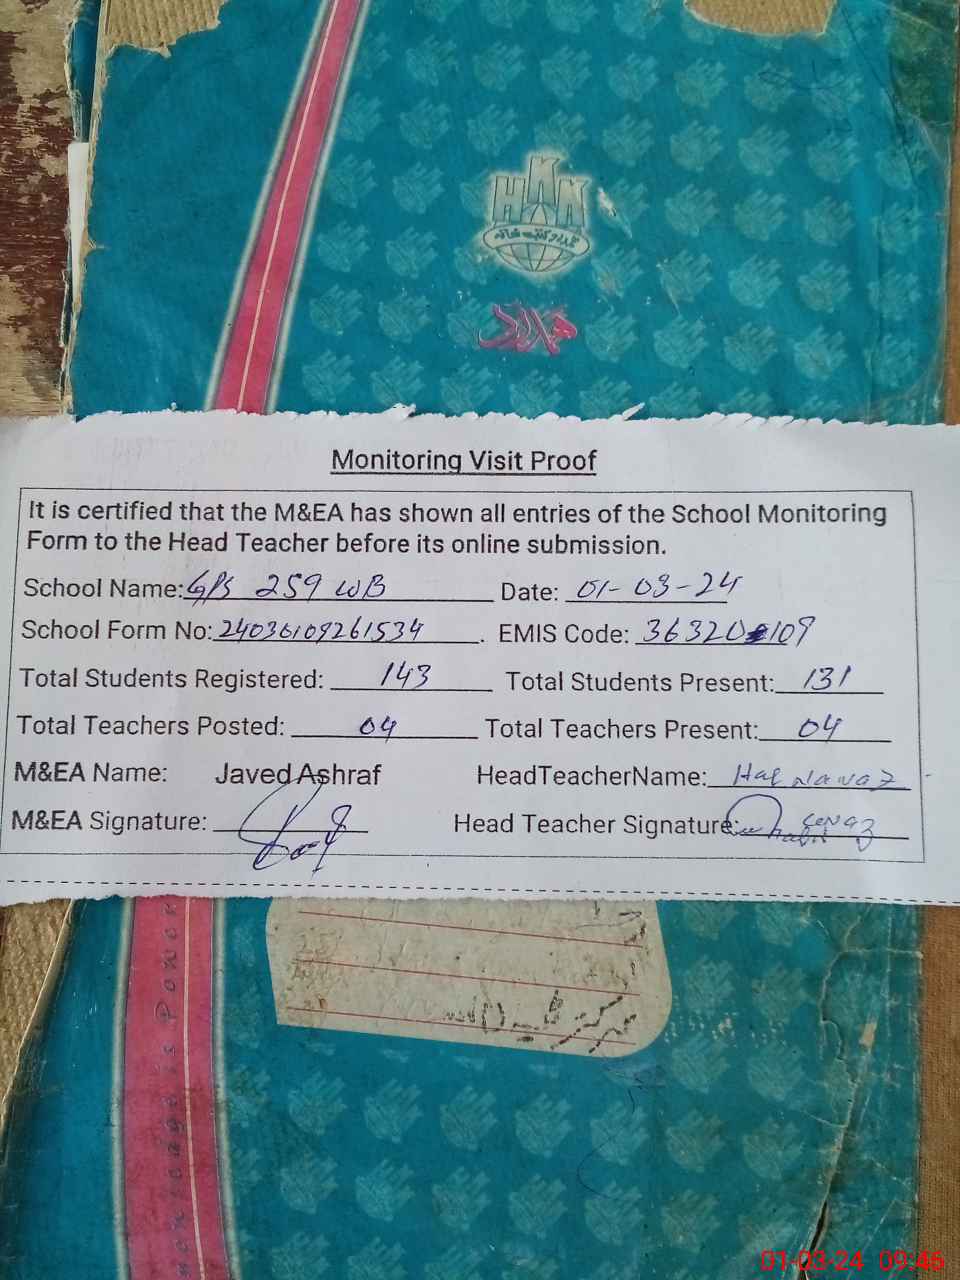 HKN
Monitoring Visit Proof
It is certified that the M&EA has shown all entries of the School Monitoring
Form to the Head Teacher before its online submission.
School Name: GPS 259 WB Date: 01-03-24
School Form No: 24036109261534 . EMIS Code: 36320109
Total Students Registered: 143 Total Students Present: 131
Total Teachers Posted: 04 Total Teachers Present: 04
M&EA Name: Javed Ashraf HeadTeacherName: Haq Nawaz
M&EA Signature: Head Teacher Signature:
Knowledge is Power
01-03-24 09:46